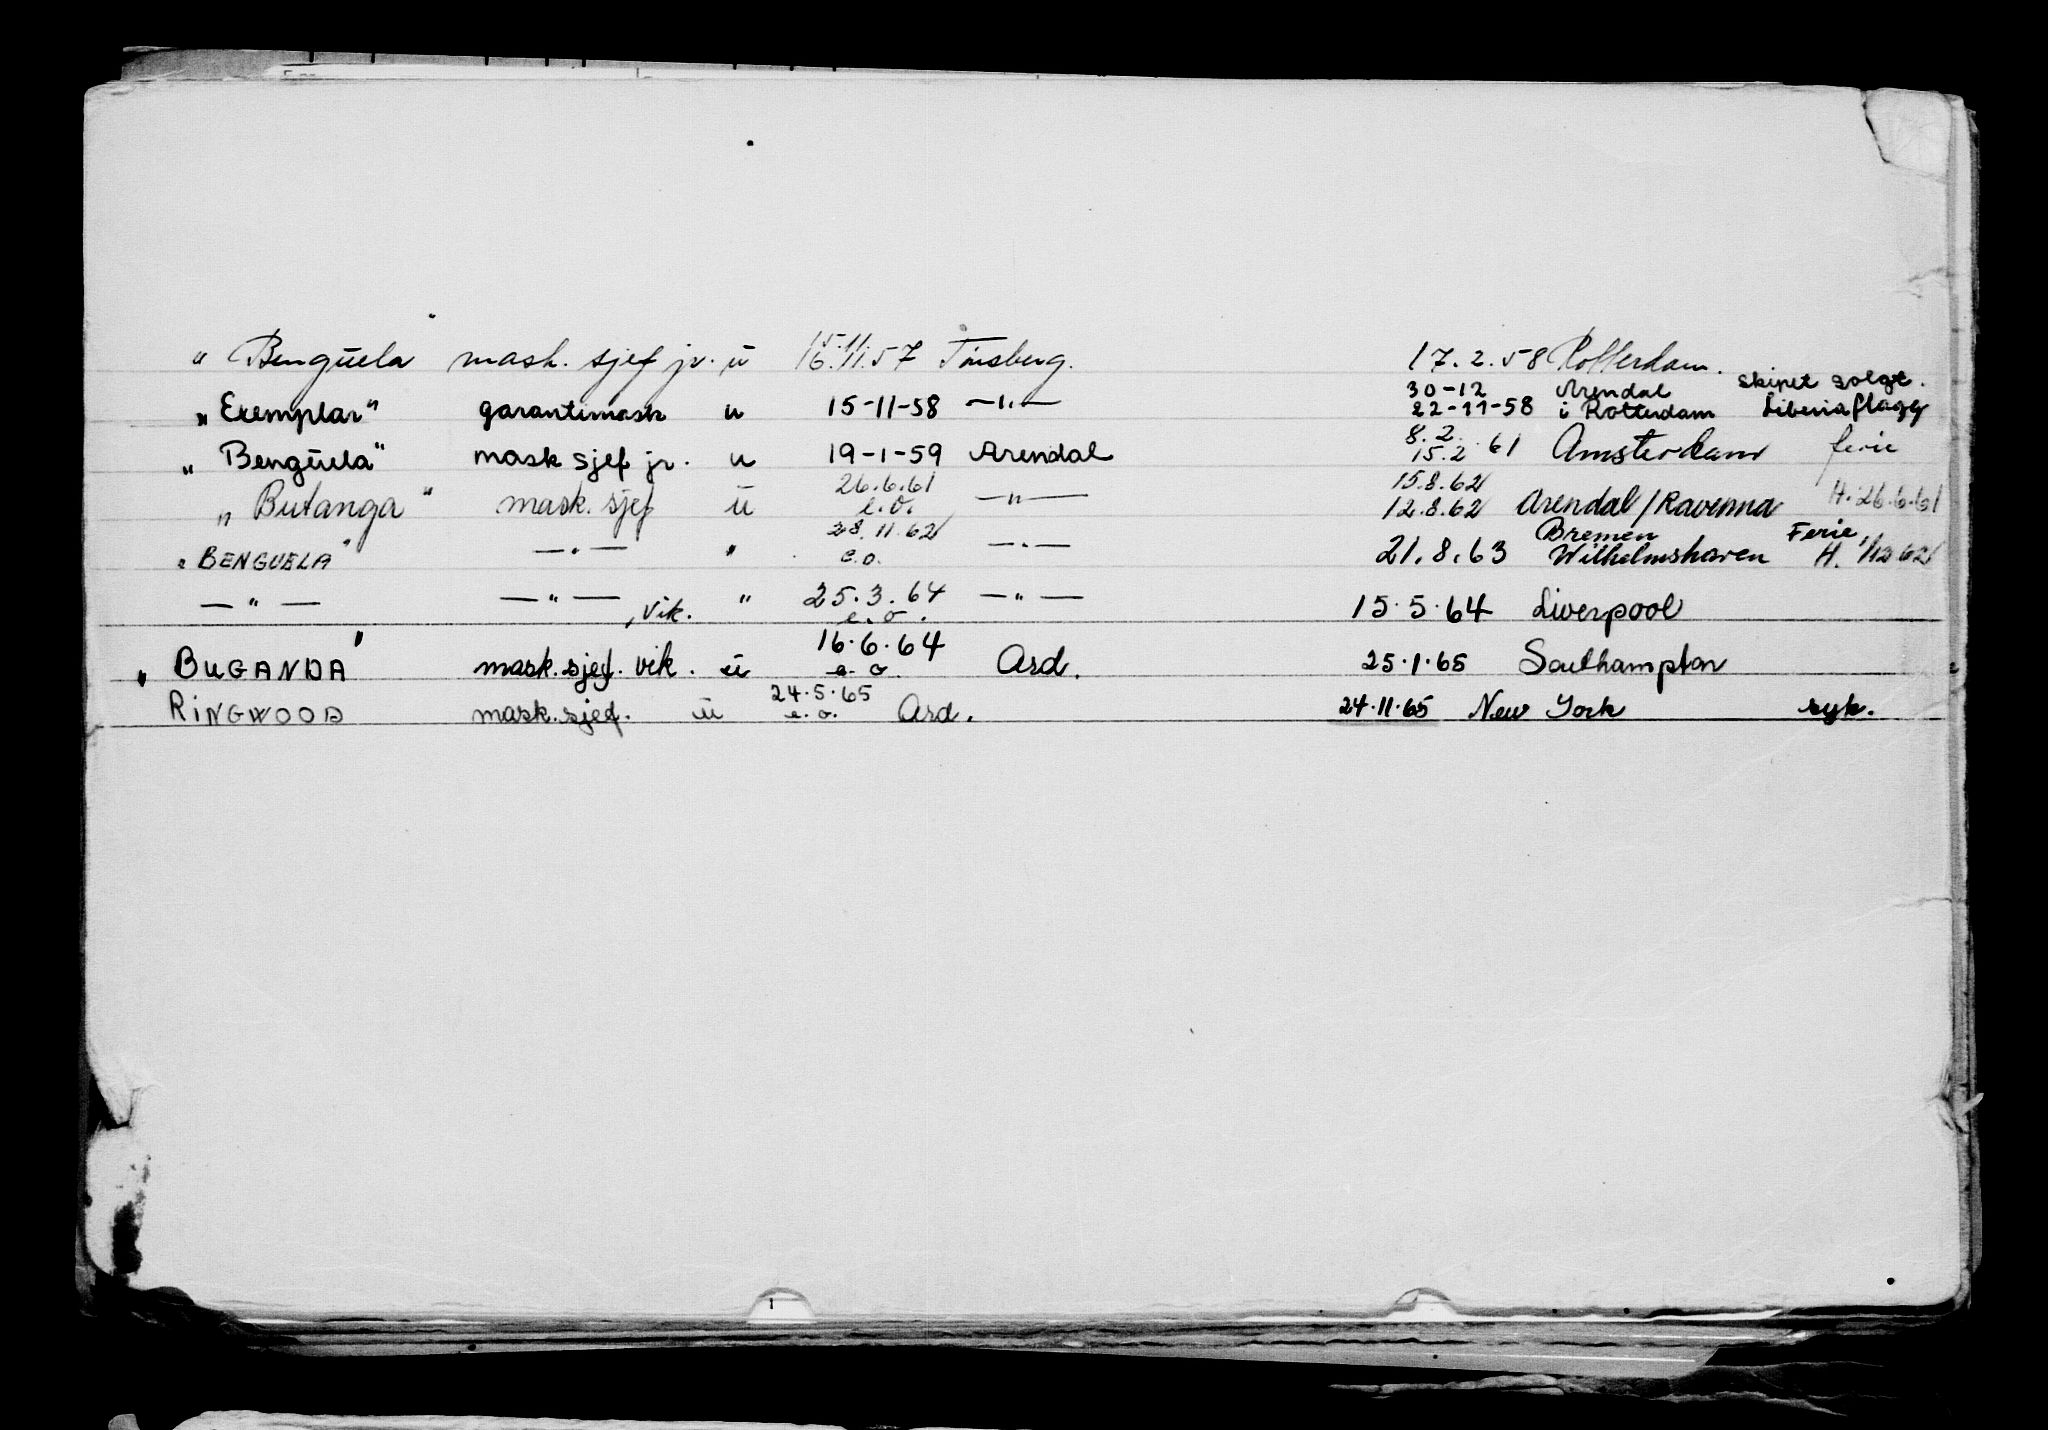 „ Benguela " mask. sjef jr. u 15.11 16.11.57 Tønsberg. 17.2.58 Rotterdam.
30-12 Arendal skipet solgt.
„Exemplar" garantimask u 15-11-58 —"— 22-11-58 i Rotterdam Liberiaflagg
8.2.
„Benguela" mask sjef jr. u 19-1-59 Arendal 15.2 61 Amsterdam ferie
26.6.61 15.8.62
„Butanga" mask. sjef u e.o. —"— 12.8.62 Arendal/Ravenna H. 26.6.61
28.11.62 Bremen Ferie,
"BENGUELA" —"— " e.o. —"— 21.8.63 Wilhelmshaven H. 1/12 62
—"— —"—, vik. " 25.3.64 —"— 15.5.64 Liverpool
e.o.
16.6.64
„BUGANDA" mask.sjef. vik. u e.o. Ard. 25.1.65 Southampton
24.5.65
RINGWOOD mask.sjef. u e.o. Ard. 24.11.65 New York syk.